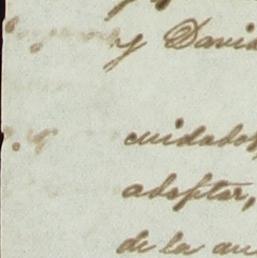 y David
cuidados,
adoptar,
de la au